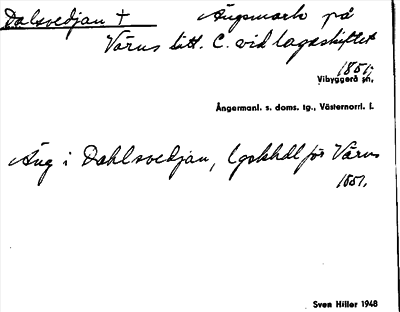 Dalsvedjan † Ängsmark på
Vårns litt. C. vid lagaskiftet
1851;
Vibyggerå sn,
Ångermanl. s. doms. tg., Västernorrl. l.
Äng i Dahlsvedjan, lgskhdl för Vårns
1851.
Sven Hiller 1948